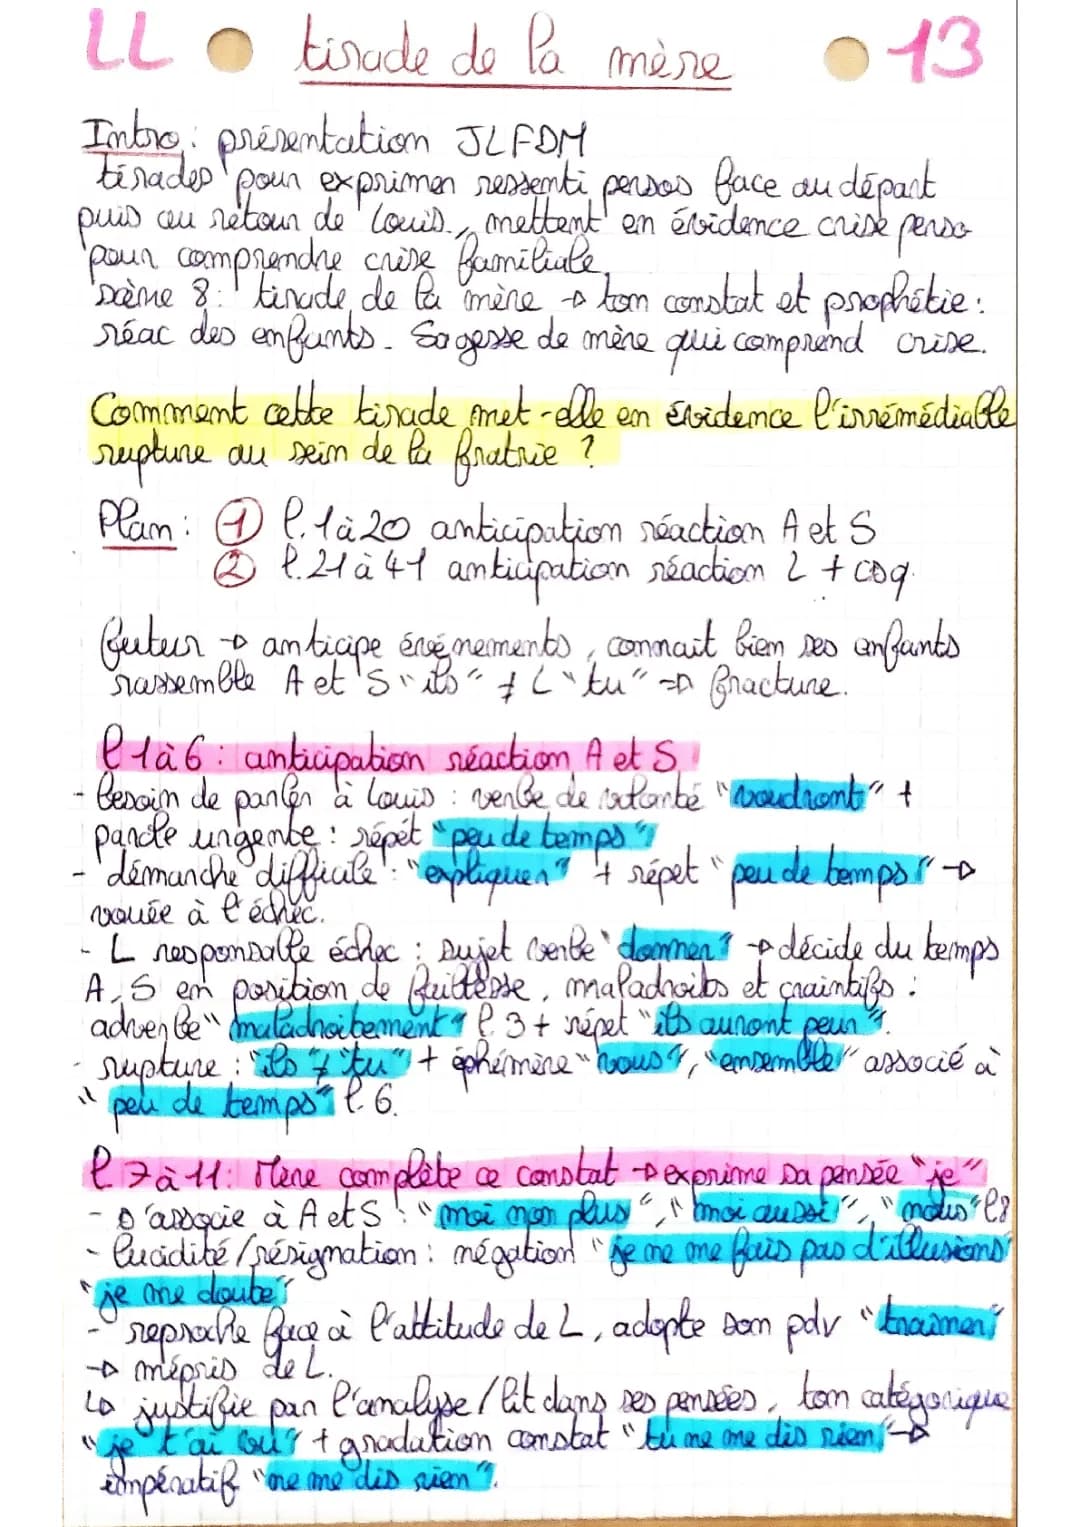 LL tirade de la mère 13
Intro : présentation JLFDM
tirades pour exprimer ressenti persos face au départ
puis au retour de Louis., mettent en évidence crise perso
pour comprendre crise familiale.
Scène 8 : tirade de la mère → ton constat et prophétie :
réac des enfants. Sagesse de mère qui comprend crise.
Comment cette tirade met-elle en évidence l'irrémédiable
rupture au sein de la fratrie ?
Plan : ① l. 1 à 20 anticipation réaction A et S
② l. 21 à 41 anticipation réaction L + csq.
futur → anticipe événements, connait bien ses enfants
rassemble A et S "ils" ≠ L "tu" => fracture.
l 1 à 6 : anticipation réaction A et S
- besoin de parler à Louis : verbe de volonté "voudront" +
parole urgente : répét "peu de temps"
- démarche difficile : "expliquer" + répet "peu de temps" →
vouée à l'échec.
- L responsable échec : sujet verbe "donner" → décide du temps
A, S en position de faiblesse, maladroits et craintifs :
adverbe "maladroitement" l. 3 + répet "ils auront peur".
- rupture : "ils" ≠ "tu" + éphémère "vous", "ensemble" associé à
"peu de temps" l. 6.
l 7 à 11 : Mère complète ce constat → exprime sa pensée "je"
- s'associe à A et S : "moi non plus", "moi aussi", "nous" l 8
- lucidité / résignation : négation "je ne me fais pas d'illusions"
"je me doute"
- reproche face à l'attitude de L, adopte son pdv "traîner"
→ mépris de L.
↳ justifie par l'analyse / lit dans ses pensées, ton catégorique
"je t'ai vu" + gradation constat "tu ne me dis rien" →
impératif "ne me dis rien".